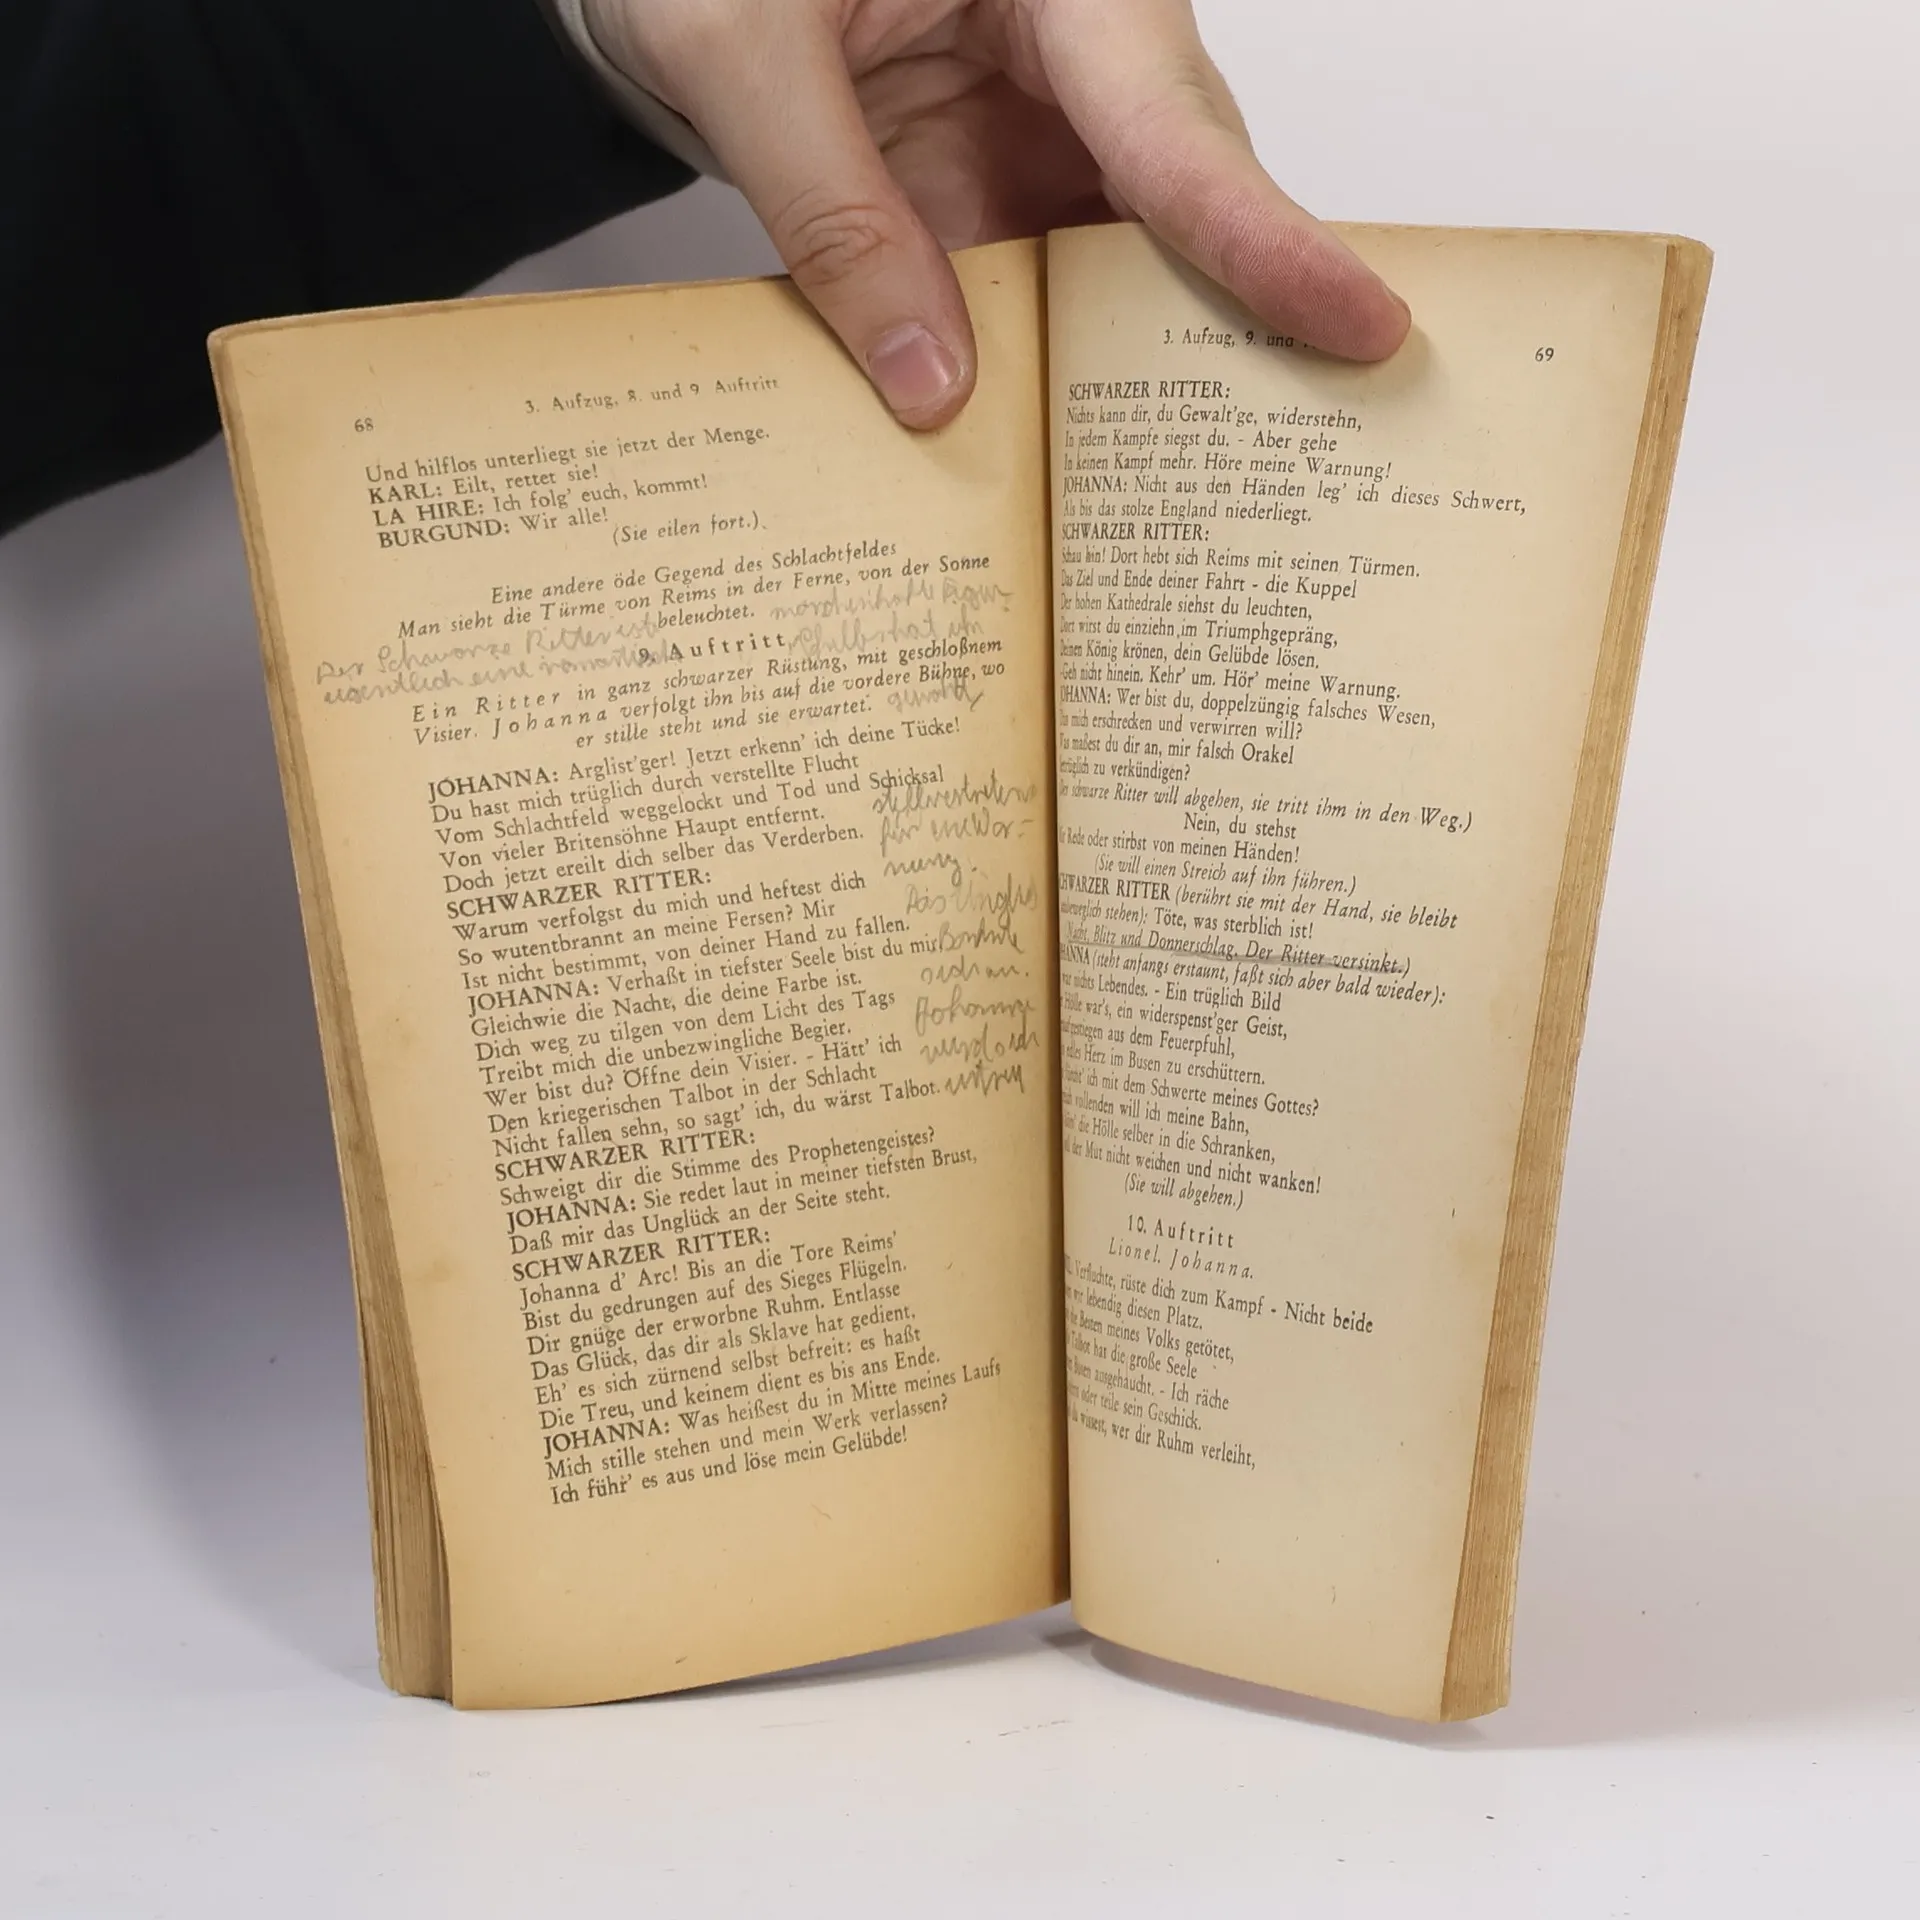 68
3. Aufzug, 8. und 9. Auftritt
Und hilflos unterliegt sie jetzt der Menge.
KARL: Eilt, rettet sie!
LA HIRE: Ich folg' euch, kommt!
BURGUND: Wir alle!
(Sie eilen fort.)
Eine andere öde Gegend des Schlachtfeldes
Man sieht die Türme von Reims in der Ferne, von der Sonne
beleuchtet. märchenhafte Figur.
Der Schwarze Ritter ist
9. Auftritt
eigentlich eine romantische
Ein Ritter in ganz schwarzer Rüstung, mit geschloßnem
Visier. Johanna verfolgt ihn bis auf die vordere Bühne, wo
er stille steht und sie erwartet. gewählt
JOHANNA: Arglist'ger! Jetzt erkenn' ich deine Tücke!
Du hast mich trüglich durch verstellte Flucht
Vom Schlachtfeld weggelockt und Tod und Schicksal
Von vieler Britensöhne Haupt entfernt.
Doch jetzt ereilt dich selber das Verderben.
stellvertretend
für eine War-
nung.
SCHWARZER RITTER:
Warum verfolgst du mich und heftest dich
So wutentbrannt an meine Fersen? Mir
Ist nicht bestimmt, von deiner Hand zu fallen.
JOHANNA: Verhaßt in tiefster Seele bist du mir
Gleichwie die Nacht, die deine Farbe ist.
Dich weg zu tilgen von dem Licht des Tags
Treibt mich die unbezwingliche Begier.
Wer bist du? Öffne dein Visier. - Hätt' ich
Den kriegerischen Talbot in der Schlacht
Nicht fallen sehn, so sagt' ich, du wärst Talbot.
Das
sich an.
Johanna
SCHWARZER RITTER:
Schweigt dir die Stimme des Prophetengeistes?
JOHANNA: Sie redet laut in meiner tiefsten Brust,
Daß mir das Unglück an der Seite steht.
SCHWARZER RITTER:
Johanna d' Arc! Bis an die Tore Reims'
Bist du gedrungen auf des Sieges Flügeln.
Dir gnüge der erworbne Ruhm. Entlasse
Das Glück, das dir als Sklave hat gedient,
Eh' es sich zürnend selbst befreit: es haßt
Die Treu, und keinem dient es bis ans Ende.
JOHANNA: Was heißest du in Mitte meines Laufs
Mich stille stehen und mein Werk verlassen?
Ich führ' es aus und löse mein Gelübde!
3. Aufzug, 9. und
69
SCHWARZER RITTER:
Nichts kann dir, du Gewalt'ge, widerstehn,
In jedem Kampfe siegst du. - Aber gehe
In keinen Kampf mehr. Höre meine Warnung!
JOHANNA: Nicht aus den Händen leg' ich dieses Schwert,
Als bis das stolze England niederliegt.
SCHWARZER RITTER:
Schau hin! Dort hebt sich Reims mit seinen Türmen.
Das Ziel und Ende deiner Fahrt - die Kuppel
Der hohen Kathedrale siehst du leuchten,
Dort wirst du einziehn im Triumphgepräng,
Deinen König krönen, dein Gelübde lösen.
-Geh nicht hinein. Kehr' um. Hör' meine Warnung.
JOHANNA: Wer bist du, doppelzüngig falsches Wesen,
Das mich erschrecken und verwirren will?
Was maßest du dir an, mir falsch Orakel
zu verkündigen?
schwarze Ritter will abgehen, sie tritt ihm in den Weg.)
Nein, du stehst
Rede oder stirbst von meinen Händen!
(Sie will einen Streich auf ihn führen.)
SCHWARZER RITTER (berührt sie mit der Hand, sie bleibt
unbeweglich stehen): Töte, was sterblich ist!
Nacht, Blitz und Donnerschlag. Der Ritter versinkt.)
JOHANNA (steht anfangs erstaunt, faßt sich aber bald wieder):
war nichts Lebendes. - Ein trüglich Bild
Hölle war's, ein widerspenst'ger Geist,
aus dem Feuerpfuhl,
edles Herz im Busen zu erschüttern.
ich mit dem Schwerte meines Gottes?
vollenden will ich meine Bahn,
die Hölle selber in die Schranken,
der Mut nicht weichen und nicht wanken!
(Sie will abgehen.)
10. Auftritt
Lionel. Johanna.
Verfluchte, rüste dich zum Kampf - Nicht beide
wir lebendig diesen Platz.
die Besten meines Volks getötet,
Talbot hat die große Seele
Busen ausgehaucht. - Ich räche
oder teile sein Geschick.
wissest, wer dir Ruhm verleiht,